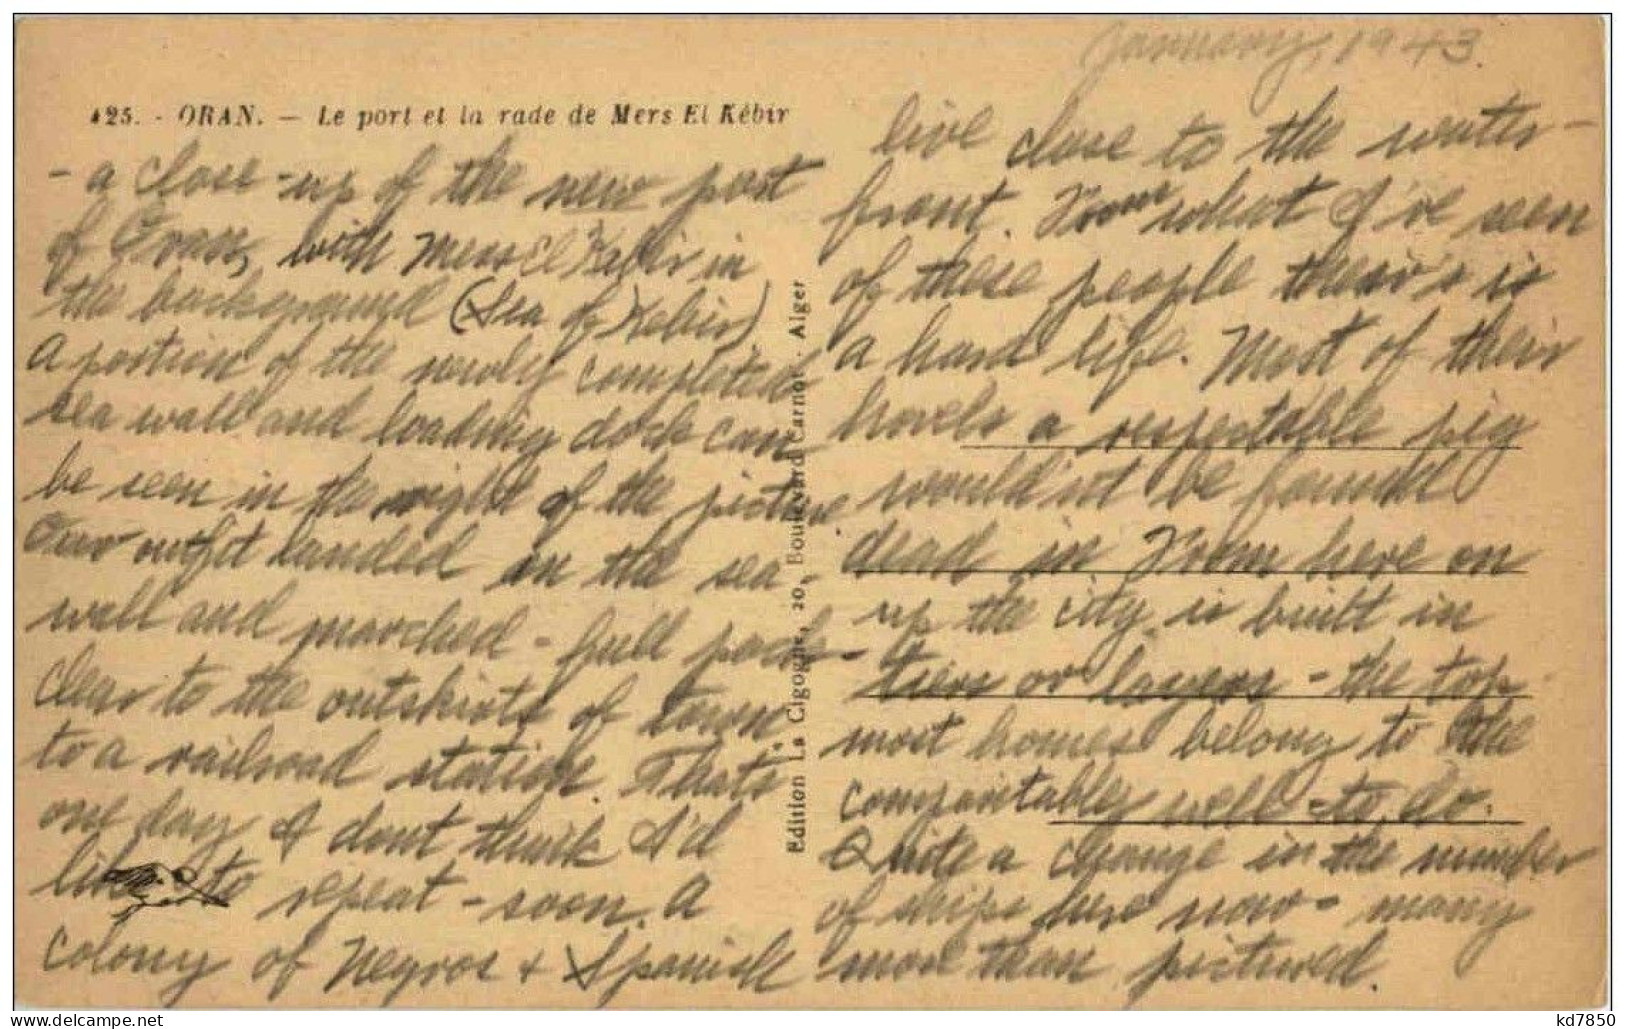 January, 1943.
425. - ORAN. — Le port et la rade de Mers El Kébir
- a close-up of the new port
of Oran, with Mers El Kabir in
the background (Sea of Kebir)
A portion of the newly completed
sea wall and loading dock can
be seen in the right of the picture
Our outfit landed on the sea-
wall and marched - full pack -
clear to the outskirts of town
to a railroad station. That's
one day I don't think I'd
like to repeat - soon. A
colony of Negros + Spanish
live close to the water-
front. From what I've seen
of these people their's is
a hard life. Most of their
hovels a respectable pig
would'nt be found
dead in. From here on
up the city is built in
tiers or layers - the top
most homes belong to the
comfortably well-to-do.
Quite a change in the number
of ships here now - many
more than pictured.
Edition La Cigogne, 20, Boulevard Carnot - Alger
kd7850